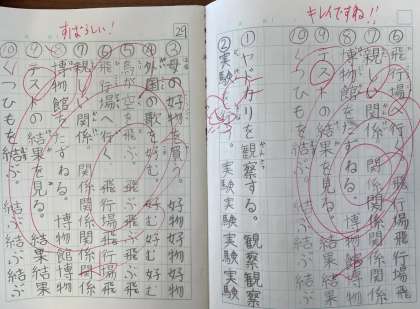 キレイですね!!
⑥飛行場へ行く 飛行場飛行
⑦親しい関係 関係関係関係
⑧博物館をたずねる。博物館博物
⑨テストの結果を見る。結果結果
⑩くつひもを結ぶ。結ぶ結ぶ
①ヤドカリを観察する。観察観察
②実験 実験実験実験実験
29
すばらしい!
③母の好物を買う。好物好物
④外国の歌を好む 好む好む
⑤鳥が空を飛ぶ。飛ぶ飛ぶ
⑥飛行場へ行く 飛行場飛行
⑦親しい関係 関係関係関係
⑧博物館をたずねる。博物館博物
⑨テストの結果を見る。結果結果
⑩くつひもを結ぶ。結ぶ結ぶ